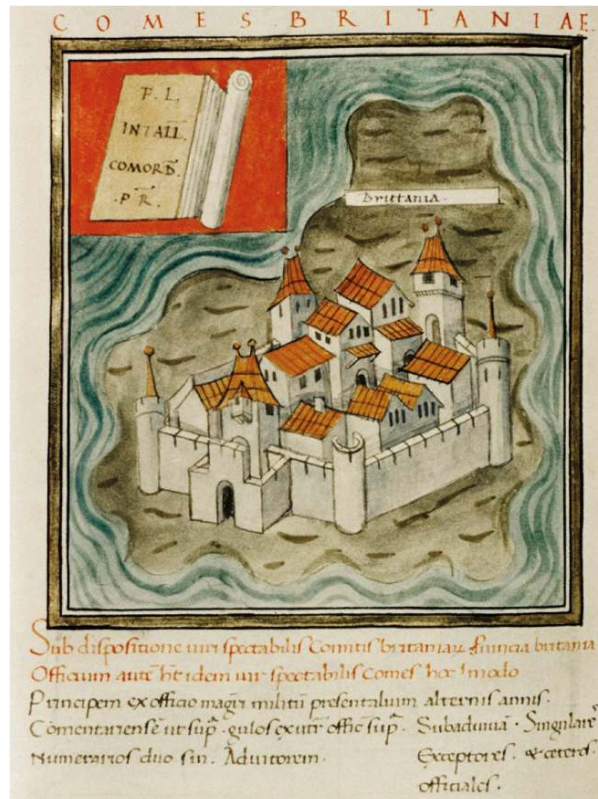 COMES BRITANIAE
F. L.
INTALL.
COMORD.
. P R.
Brittania.
Sub dispositione viri spectabilis Comitis britaniae Provincia britania
Officium aute hr idem vir spectabilis Comes hoc modo
Principem ex officio magri militu presentalium alternis annis.
Comentariense ut sup. gulos ex utr offic sup. Subadiuua. Singulare
Numerarios duo sin. Adiutorem. Exceptores. & ceteros.
officiales.